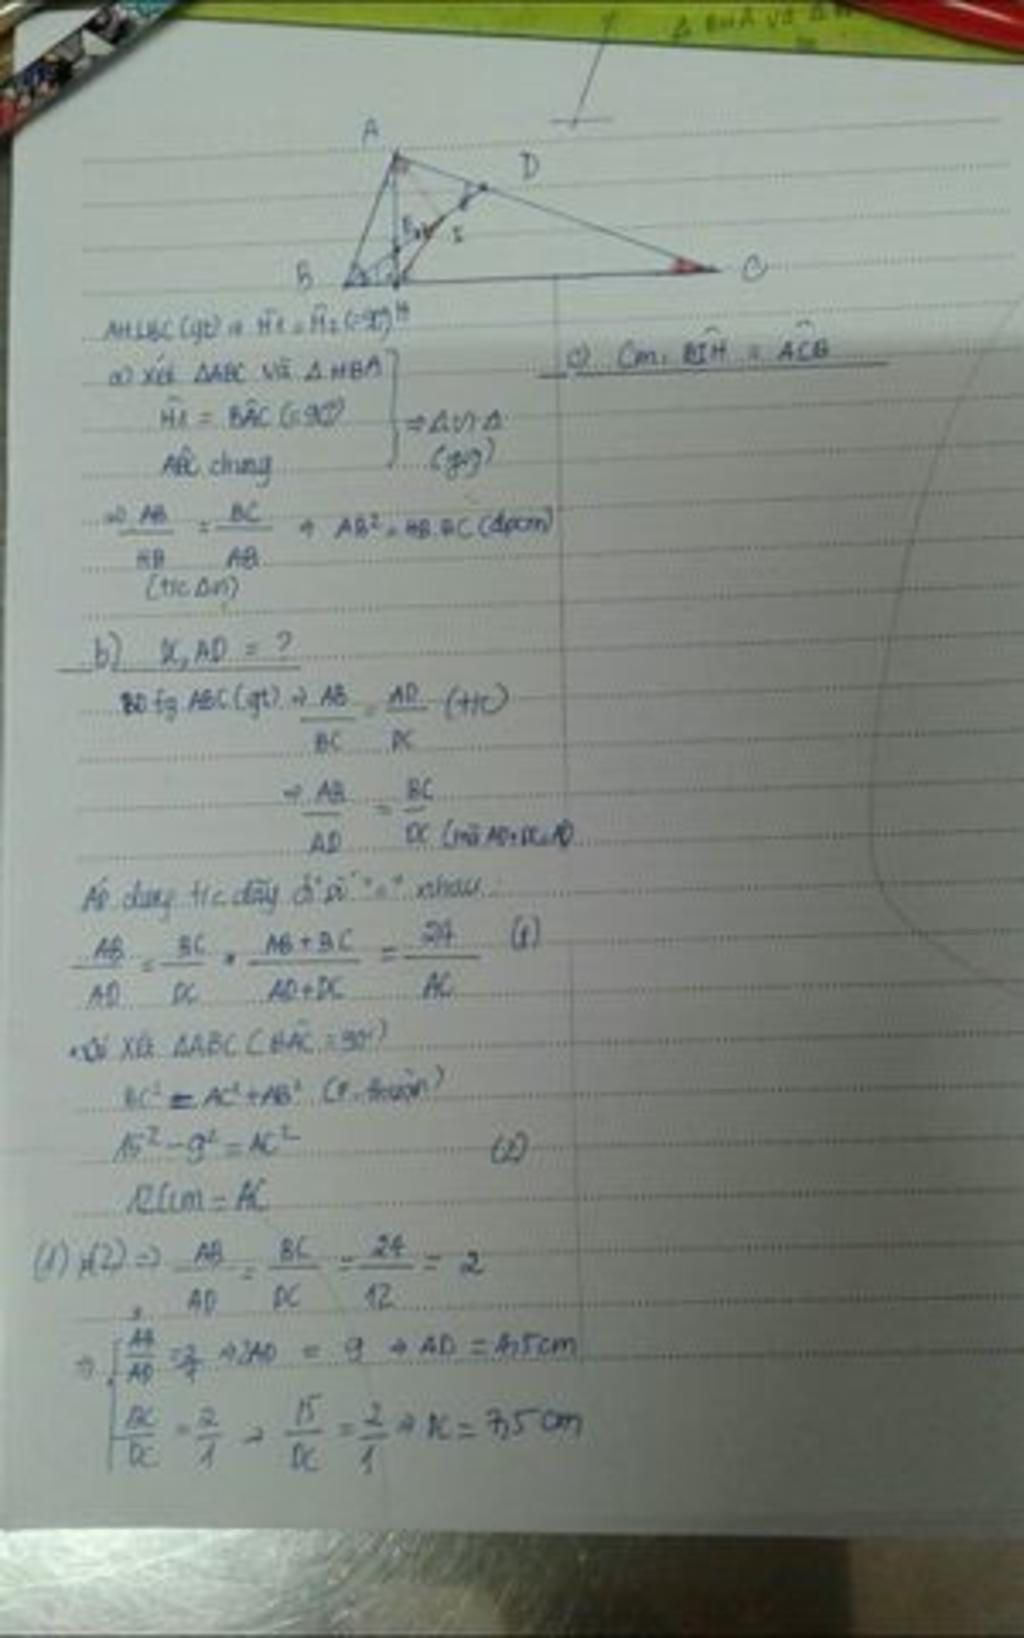 Δ BHA và Δ
A
D
E
I
B
C
H
AH⊥BC (gt) ⇒ Ĥ1 = Ĥ2 (=90°)
a) Xét ΔABC và ΔHBA
Ĥ1 = BÂC (=90°)
ABC chung
⇒ Δ ∽ Δ
(gg)
⇒ AB/HB = BC/AB → AB² = HB.BC (đpcm)
(t/c Δ∽)
b) DC, AD = ?
BD fg ABC (gt) ⇒ AB/BC = AD/DC (t/c)
⇒ AB/AD = BC/DC (mà AD+DC=AC)
Áp dụng t/c dãy "=" nhau
AB/AD = BC/DC = AB+BC/AD+DC = 24/AC (1)
Xét ΔABC (BÂC = 90°)
BC² = AC² + AB²
15² - 9² = AC² (2)
12cm = AC
(1), (2) ⇒ AB/AD = BC/DC = 24/12 = 2
⇒ AB/AD = 2/1 → 2AD = 9 → AD = 4,5cm
BC/DC = 2/1 → 15/DC = 2/1 → DC = 7,5cm
c) Cm: BIH = ACB